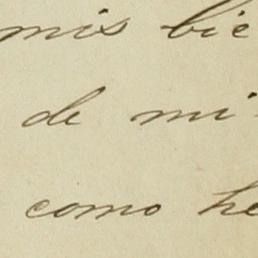 mis bie
de mi
como he